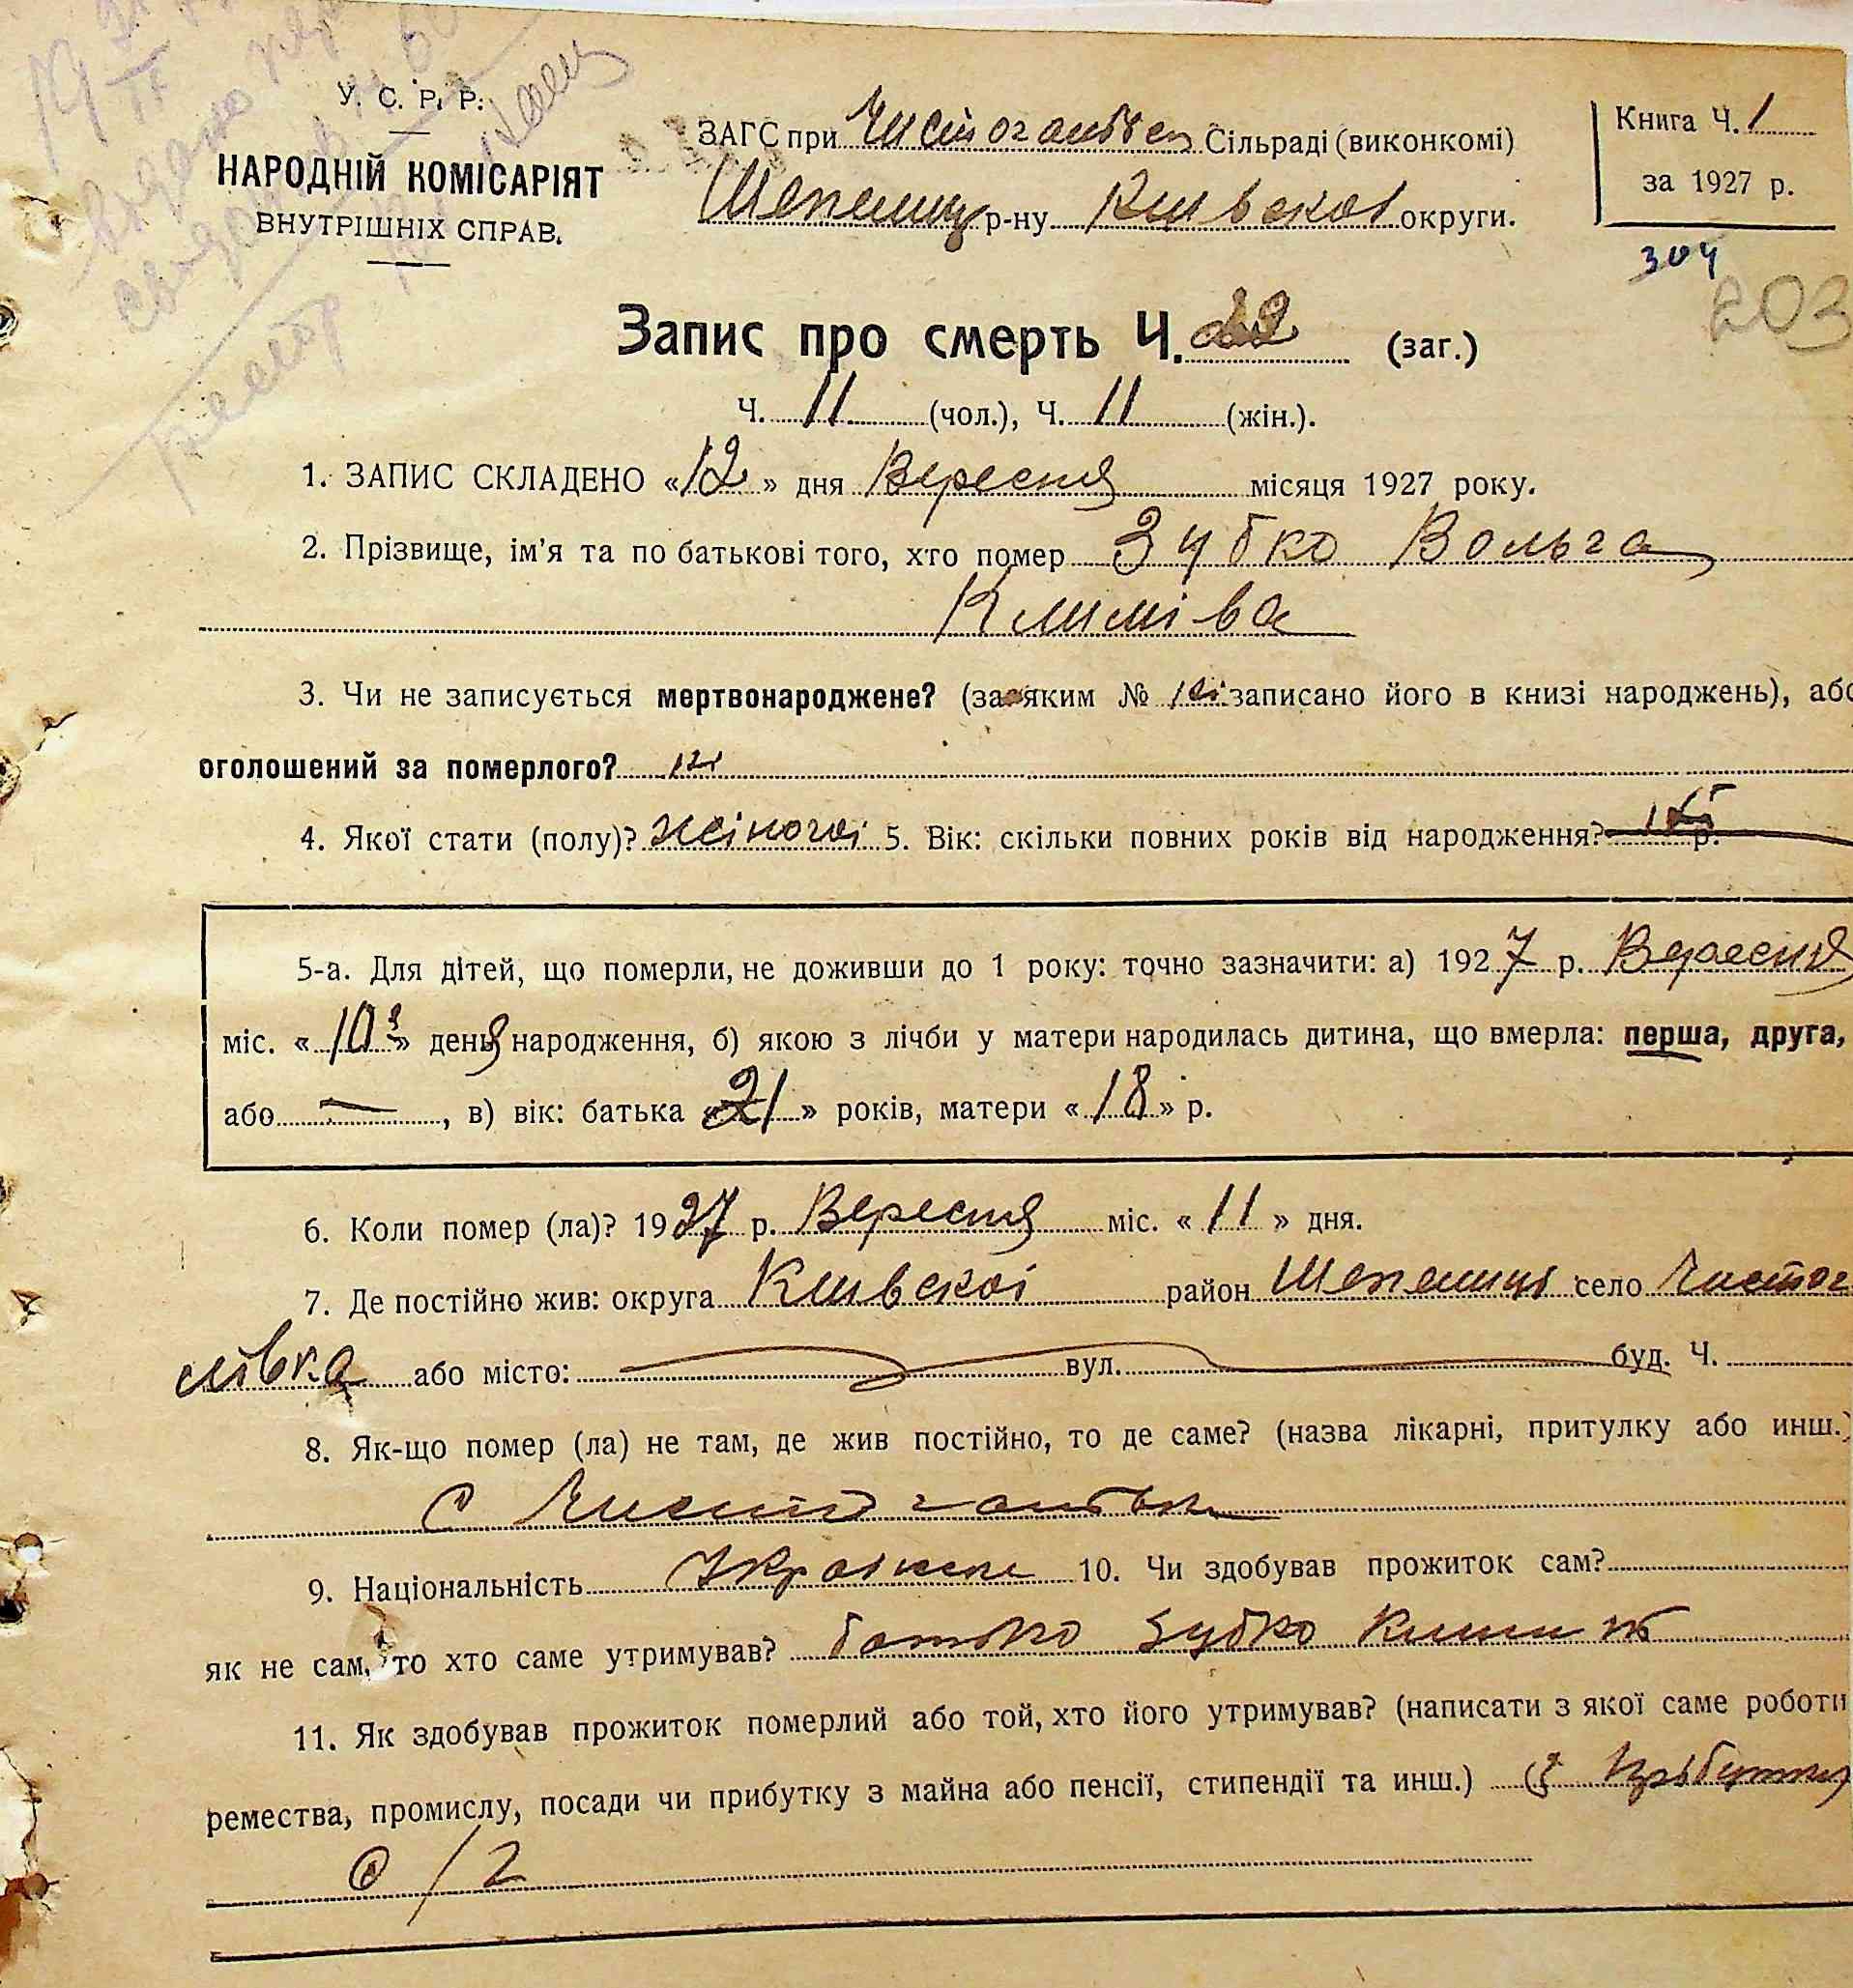 У. С. Р. Р.
НАРОДНІЙ КОМІСАРІЯТ
ВНУТРІШНІХ СПРАВ.
ЗАГС при Чистогалівск Сільраді (виконкомі)
Шепелиц р-ну Київської округи.
Книга Ч. 1
за 1927 р.
304
203
Запис про смерть Ч. 22 (заг.)
Ч. 11 (чол.), Ч. 11 (жін.).
1. ЗАПИС СКЛАДЕНО «12» дня Вересня місяця 1927 року.
2. Прізвище, ім’я та по батькові того, хто помер Зубко Вольга
Климіва
3. Чи не записується мертвонароджене? (за яким № ні записано його в книзі народжень), або
оголошений за померлого? ні
4. Якої стати (полу)? жіночої 5. Вік: скільки повних років від народження? р.
5-а. Для дітей, що померли, не доживши до 1 року: точно зазначити: а) 1927 р. Вересня
міс. «10» дня народження, б) якою з лічби у матери народилась дитина, що вмерла: перша, друга,
або —, в) вік: батька «21» років, матери «18» р.
6. Коли помер (ла)? 1927 р. Вересня міс. «11» дня.
7. Де постійно жив: округа Київскої район Шепелиці село Чистога
лівка або місто: вул. буд. Ч.
8. Як-що помер (ла) не там, де жив постійно, то де саме? (назва лікарні, притулку або инш.)
С Чистогалівка
9. Національність Українка 10. Чи здобував прожиток сам?
як не сам, то хто саме утримував? батько Зубко Клим
11. Як здобував прожиток померлий або той, хто його утримував? (написати з якої саме роботи
ремества, промислу, посади чи прибутку з майна або пенсії, стипендії та инш.) з прибутку
с/г